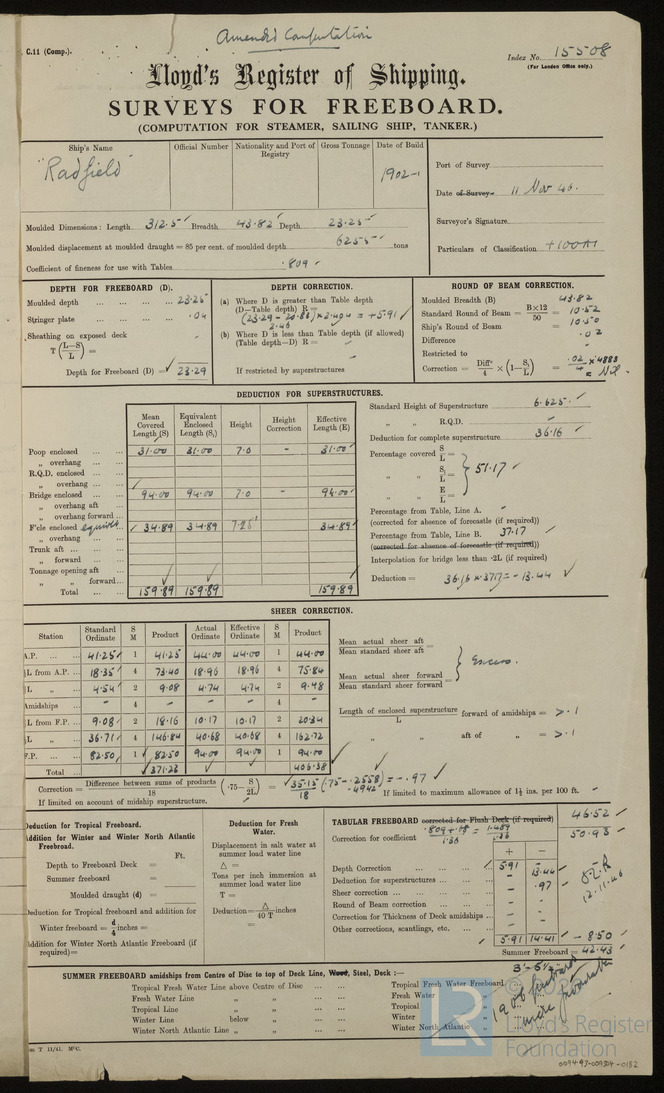 Amended Computation
C.11 (Comp.).
Index No. 15508
(For London Office only.)
Lloyd's Register of Shipping.
SURVEYS FOR FREEBOARD.
(COMPUTATION FOR STEAMER, SAILING SHIP, TANKER.)
Ship's Name Official Number Nationality and Port of Registry Gross Tonnage Date of Build
"Radfield" 1902-1
Port of Survey
Date of Survey 11 Nov 46.
Surveyor's Signature
Particulars of Classification +100A1
Moulded Dimensions: Length 312.5 Breadth 43.82 Depth 23.25
Moulded displacement at moulded draught = 85 per cent. of moulded depth 6255 tons
Coefficient of fineness for use with Tables .809
DEPTH FOR FREEBOARD (D).
Moulded depth 23.25
Stringer plate .04
Sheathing on exposed deck -
T (L-S/L) =
Depth for Freeboard (D) = 23.29
DEPTH CORRECTION.
(a) Where D is greater than Table depth
(D-Table depth) R =
(23.29 - 20.83) × 2.404 = +5.91
2.46
(b) Where D is less than Table depth (if allowed)
(Table depth-D) R = -
If restricted by superstructures
ROUND OF BEAM CORRECTION.
Moulded Breadth (B) 43.82
Standard Round of Beam = B×12/50 = 10.52
Ship's Round of Beam = 10.50
Difference .02
Restricted to -
Correction = Diffce/4 × (1 - S₁/L) = .02/4 × .4883
= Nil.
DEDUCTION FOR SUPERSTRUCTURES.
Mean Covered Length (S) Equivalent Enclosed Length (S₁) Height Height Correction Effective Length (E)
Poop enclosed 31.00 31.00 7.0 - 31.00
" overhang
R.Q.D. enclosed
" overhang
Bridge enclosed 94.00 94.00 7.0 - 94.00
" overhang aft
" overhang forward
F'cle enclosed equiv. 34.89 34.89 7.25 34.89
" overhang
Trunk aft
" forward
Tonnage opening aft
" " forward
Total 159.89 159.89 159.89
Standard Height of Superstructure 6.625
" " R.Q.D. -
Deduction for complete superstructure 36.16
Percentage covered S/L =
" " S₁/L = 51.17
" " E/L =
Percentage from Table, Line A. -
(corrected for absence of forecastle (if required))
Percentage from Table, Line B. 37.17
(corrected for absence of forecastle (if required))
Interpolation for bridge less than .2L (if required)
Deduction = 36.16 × .3717 = -13.44
SHEER CORRECTION.
Station Standard Ordinate S M Product Actual Ordinate Effective Ordinate S M Product
A.P. 41.25 1 41.25 44.00 44.00 1 44.00
L from A.P. 18.35 4 73.40 18.96 18.96 4 75.84
L " 4.54 2 9.08 4.74 4.74 2 9.48
Amidships - 4 - - - 4 -
L from F.P. 9.08 2 18.16 10.17 10.17 2 20.34
L " 36.71 4 146.84 40.68 40.68 4 162.72
F.P. 82.50 1 82.50 94.00 94.00 1 94.00
Total 371.23 406.38
Mean actual sheer aft
Mean standard sheer aft =
Mean actual sheer forward
Mean standard sheer forward = Excess.
Length of enclosed superstructure/L forward of amidships = > .1
" " aft of " = > .1
Correction = Difference between sums of products/18 (.75 - S/2L) = 35.15/18 (.75 - .2558) = -.97
.4942
If limited on account of midship superstructure.
If limited to maximum allowance of 1½ ins. per 100 ft. -
Deduction for Tropical Freeboard.
Addition for Winter and Winter North Atlantic Freeboard.
Ft.
Depth to Freeboard Deck =
Summer freeboard =
Moulded draught (d) =
Deduction for Tropical freeboard and addition for
Winter freeboard = d/4 inches =
Addition for Winter North Atlantic Freeboard (if required) =
Deduction for Fresh Water.
Displacement in salt water at summer load water line
Δ =
Tons per inch immersion at summer load water line
T =
Deduction = Δ/40 T inches
=
TABULAR FREEBOARD corrected for Flush Deck (if required) 46.52
Correction for coefficient .809 + .68/1.36 = 1.489/1.36 50.93
+ -
Depth Correction 5.91 -
Deduction for superstructures - 13.44
Sheer correction - .97
Round of Beam correction - -
Correction for Thickness of Deck amidships - -
Other corrections, scantlings, etc. - -
5.91 14.41 - 8.50
Summer Freeboard = 42.43
12.11.46
SUMMER FREEBOARD amidships from Centre of Disc to top of Deck Line, Wood, Steel, Deck :— 3'-6½"
Tropical Fresh Water Line above Centre of Disc
Fresh Water Line " "
Tropical Line " "
Winter Line below "
Winter North Atlantic Line " "
Tropical Fresh Water Freeboard
Fresh Water "
Tropical "
Winter "
Winter North Atlantic "
1906 freeboard
LR
© 2020
Lloyd's Register
Foundation
T 11/41. McC.
0094-97-009304-0182